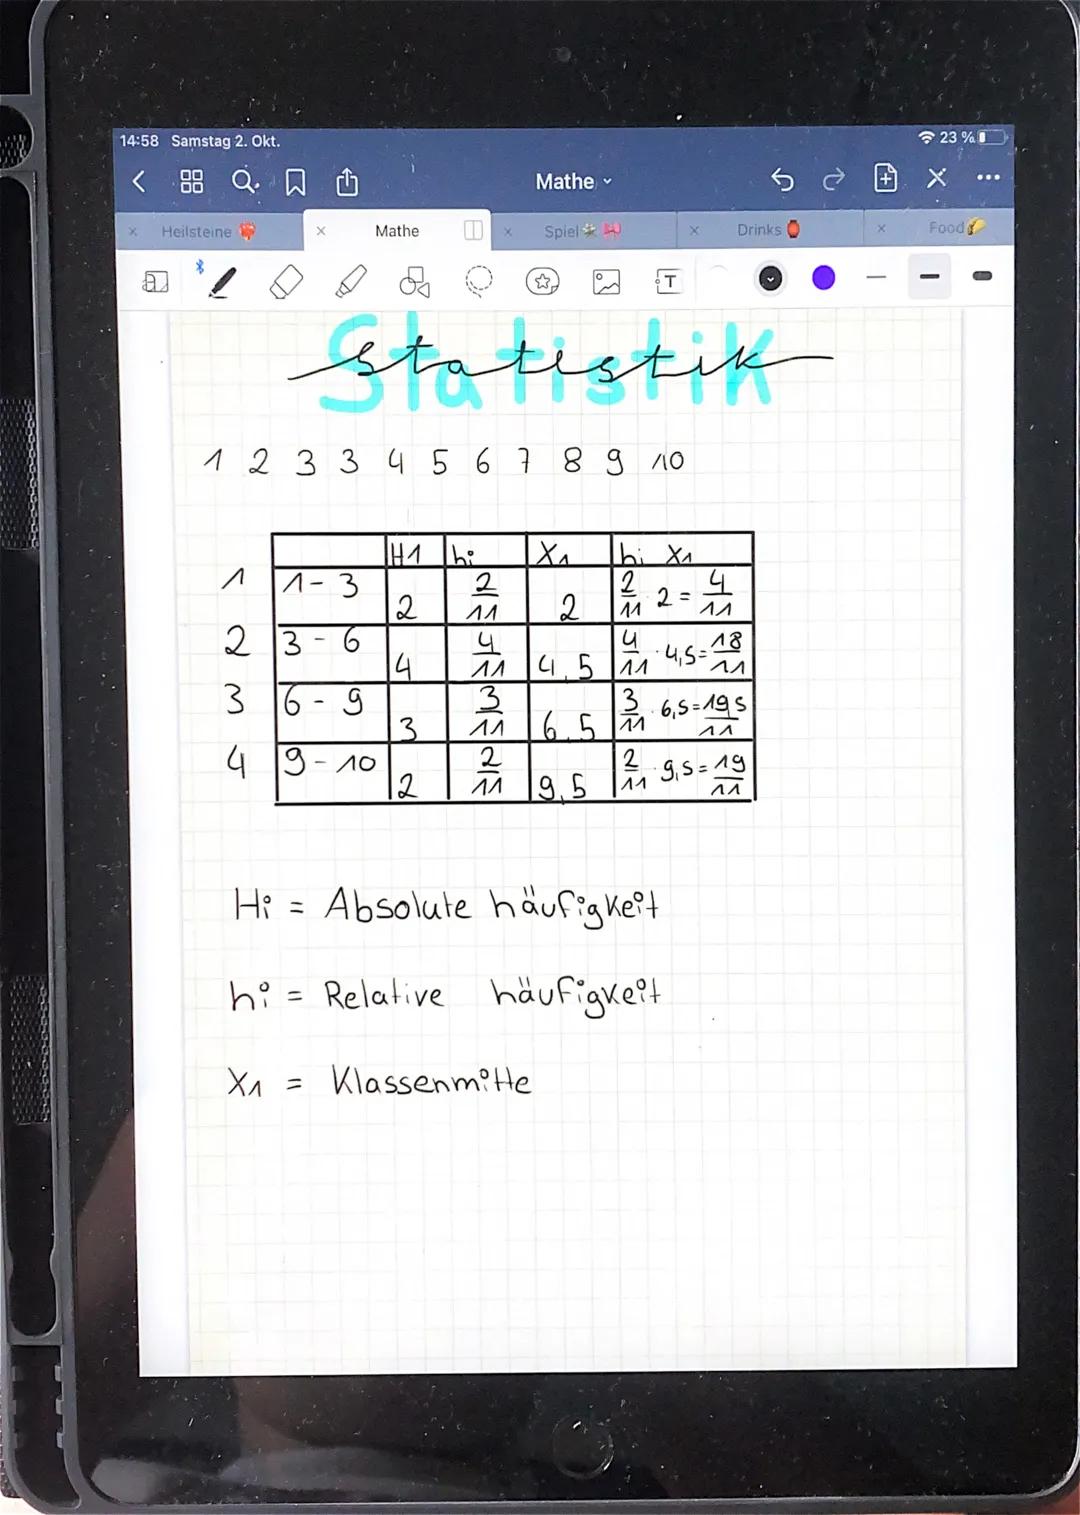 14:58 Samstag 2. Okt. 23 %
Mathe
Heilsteine Mathe Spiel Drinks Food
T
Statistik
Statistik
1 2 3 3 4 5 6 7 8 9 10
H1 hi X1 hi X1
1 1-3 2 2/11 2 2/11 · 2 = 4/11
2 3-6 4 4/11 4,5 4/11 · 4,5 = 18/11
3 6-9 3 3/11 6,5 3/11 · 6,5 = 19,5/11
4 9-10 2 2/11 9,5 2/11 · 9,5 = 19/11
Hi = Absolute häufigkeit
hi = Relative häufigkeit
X1 = Klassenmitte